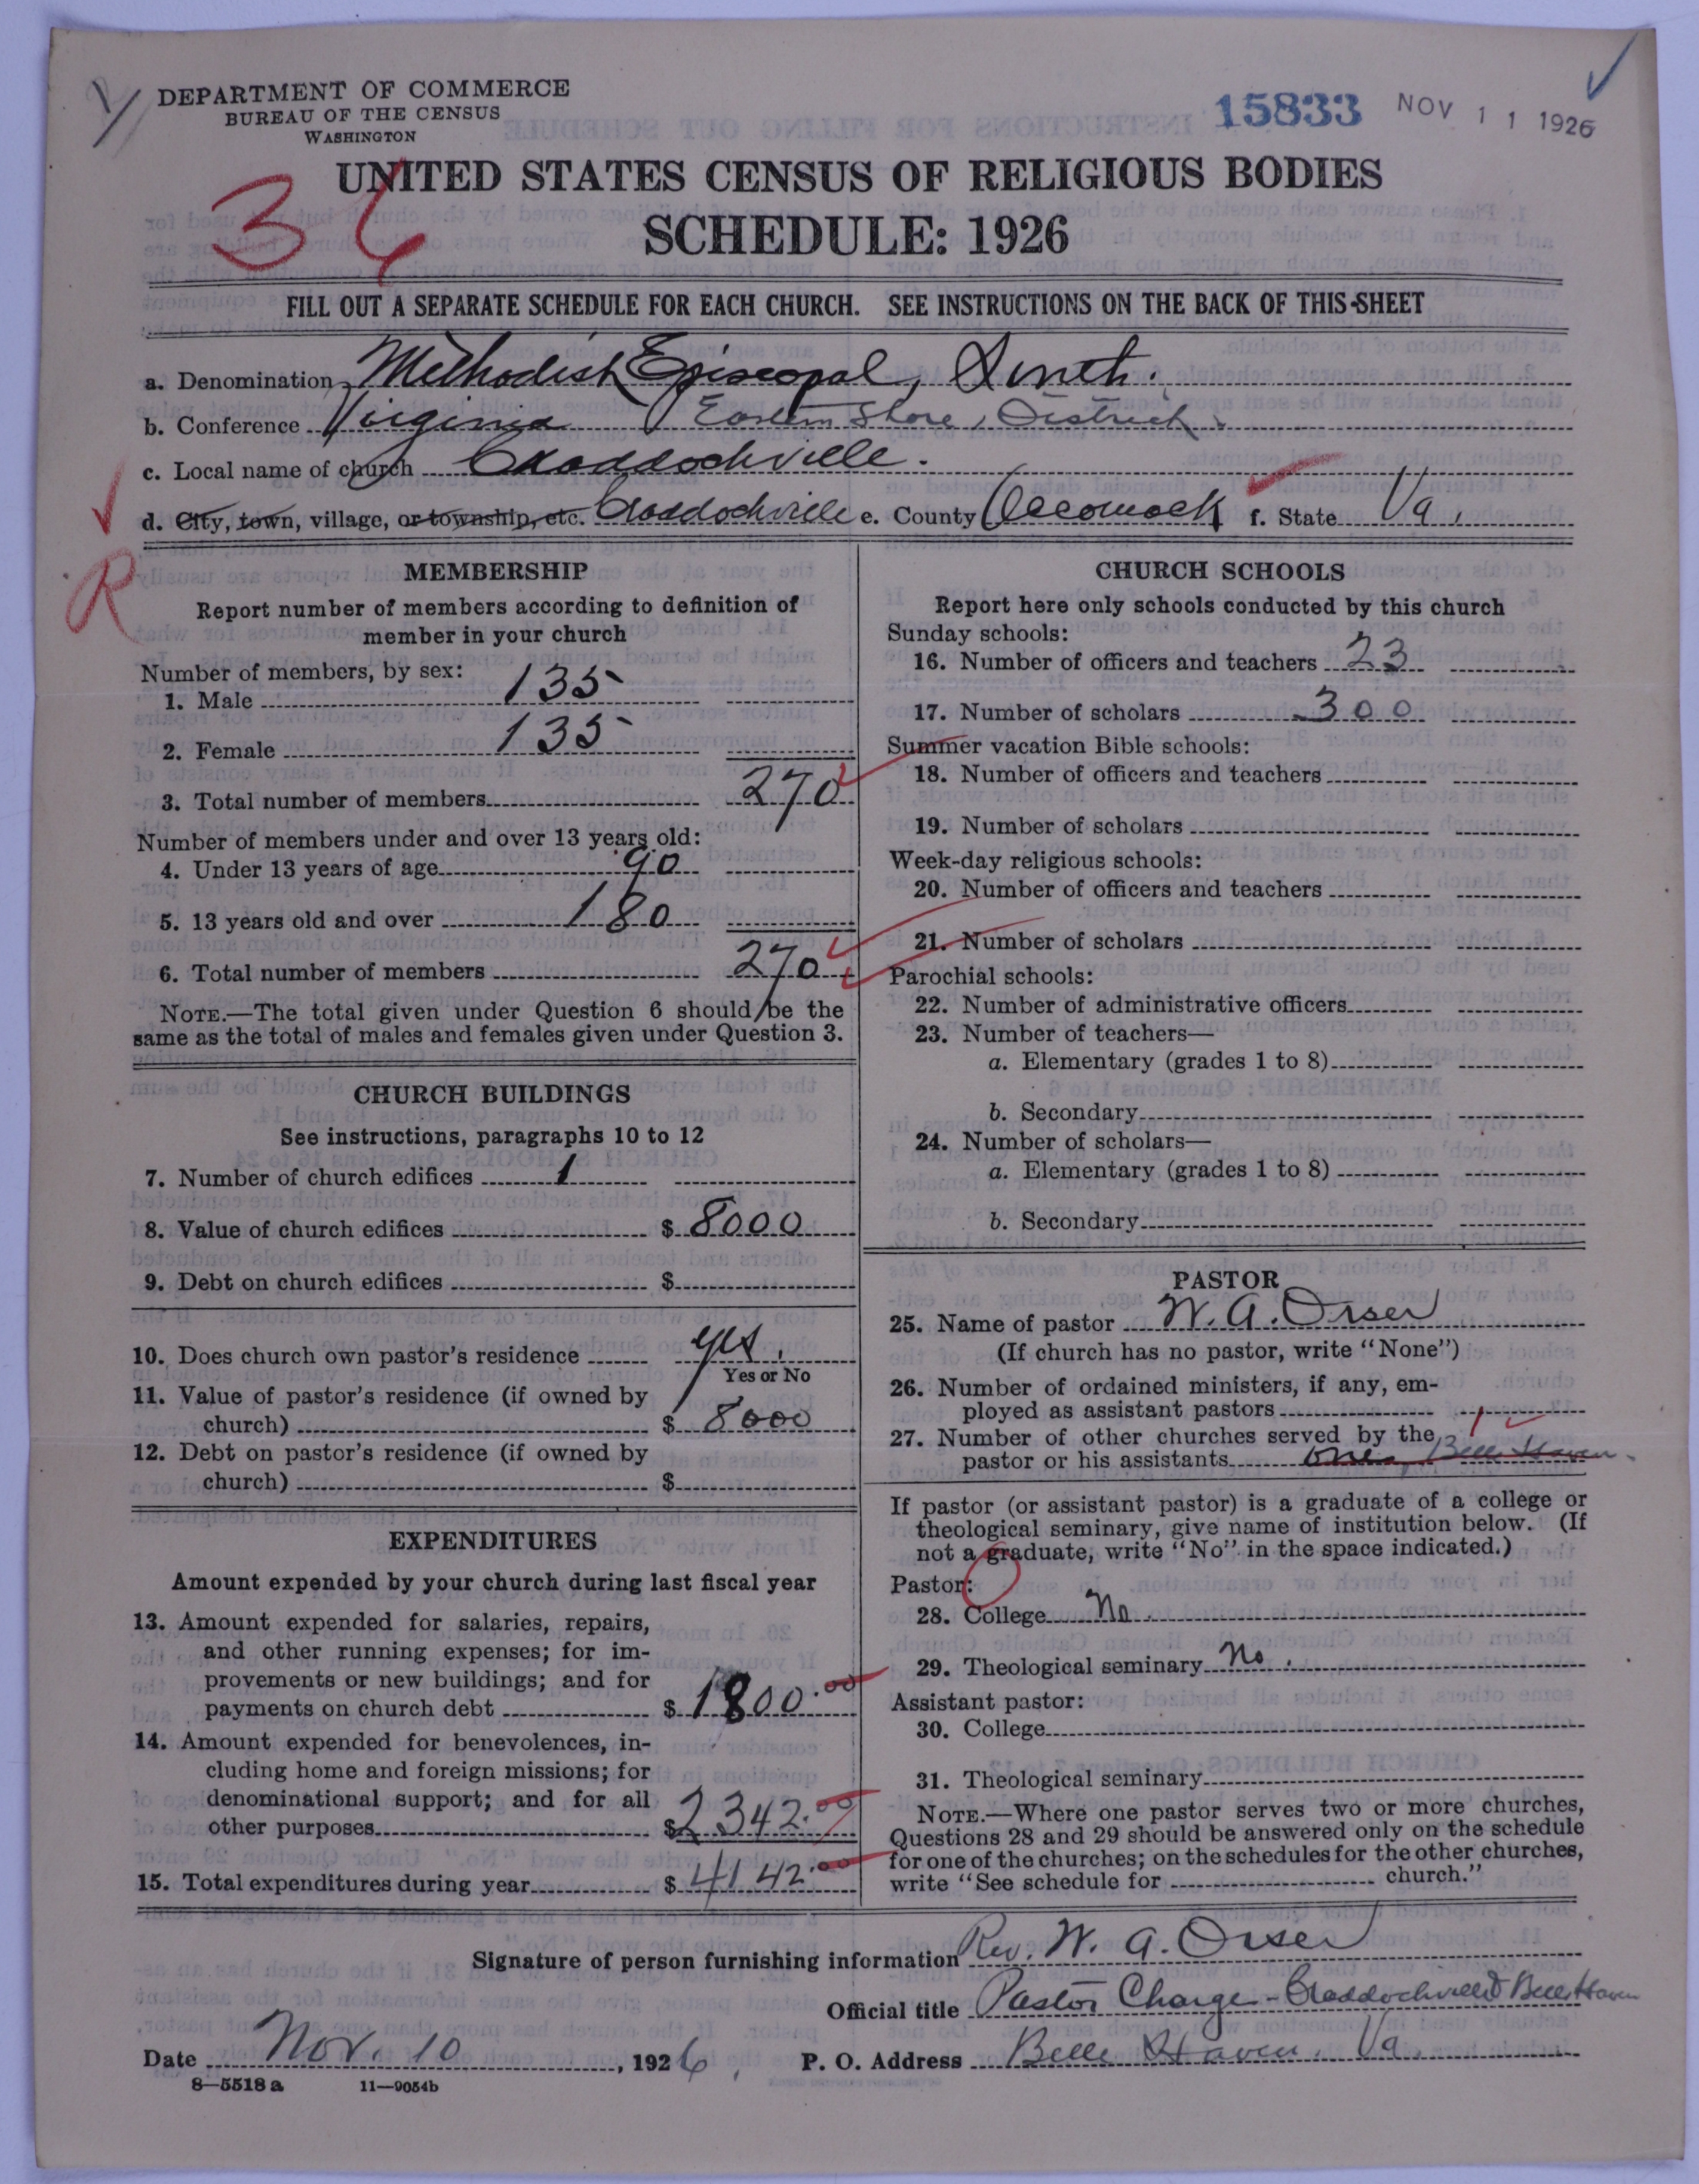 DEPARTMENT OF COMMERCE
BUREAU OF THE CENSUS
WASHINGTON
15833 NOV 11 1926
36
UNITED STATES CENSUS OF RELIGIOUS BODIES
SCHEDULE: 1926
FILL OUT A SEPARATE SCHEDULE FOR EACH CHURCH. SEE INSTRUCTIONS ON THE BACK OF THIS SHEET
a. Denomination Methodist Episcopal, South.
b. Conference Virginia Eastern Shore, District.
c. Local name of church Craddockville.
d. City, town, village, or township, etc. Craddockville e. County Accomack f. State Va.
R
MEMBERSHIP
Report number of members according to definition of
member in your church
Number of members, by sex:
1. Male 135
2. Female 135
3. Total number of members 270
Number of members under and over 13 years old:
4. Under 13 years of age 90
5. 13 years old and over 180
6. Total number of members 270
NOTE.—The total given under Question 6 should be the
same as the total of males and females given under Question 3.
CHURCH BUILDINGS
See instructions, paragraphs 10 to 12
7. Number of church edifices 1
8. Value of church edifices $ 8000
9. Debt on church edifices $
10. Does church own pastor's residence yes.
Yes or No
11. Value of pastor's residence (if owned by
church) $ 8000
12. Debt on pastor's residence (if owned by
church) $
EXPENDITURES
Amount expended by your church during last fiscal year
13. Amount expended for salaries, repairs,
and other running expenses; for im-
provements or new buildings; and for
payments on church debt $ 1800.00
14. Amount expended for benevolences, in-
cluding home and foreign missions; for
denominational support; and for all
other purposes $ 2342.00
15. Total expenditures during year $ 4142.00
CHURCH SCHOOLS
Report here only schools conducted by this church
Sunday schools:
16. Number of officers and teachers 23
17. Number of scholars 300
Summer vacation Bible schools:
18. Number of officers and teachers
19. Number of scholars
Week-day religious schools:
20. Number of officers and teachers
21. Number of scholars
Parochial schools:
22. Number of administrative officers
23. Number of teachers—
a. Elementary (grades 1 to 8)
b. Secondary
24. Number of scholars—
a. Elementary (grades 1 to 8)
b. Secondary
PASTOR
25. Name of pastor W. A. Orser
(If church has no pastor, write "None")
26. Number of ordained ministers, if any, em-
ployed as assistant pastors
27. Number of other churches served by the 1
pastor or his assistants one, Belle Haven.
If pastor (or assistant pastor) is a graduate of a college or
theological seminary, give name of institution below. (If
not a graduate, write "No" in the space indicated.)
Pastor:
28. College No.
29. Theological seminary No.
Assistant pastor:
30. College
31. Theological seminary
NOTE.—Where one pastor serves two or more churches,
Questions 28 and 29 should be answered only on the schedule
for one of the churches; on the schedules for the other churches,
write "See schedule for church."
Signature of person furnishing information Rev. W. A. Orser
Official title Pastor Charge - Craddockville & Belle Haven
Date Nov. 10, 1926. P. O. Address Belle Haven, Va.
8—5518 a 11—9054b